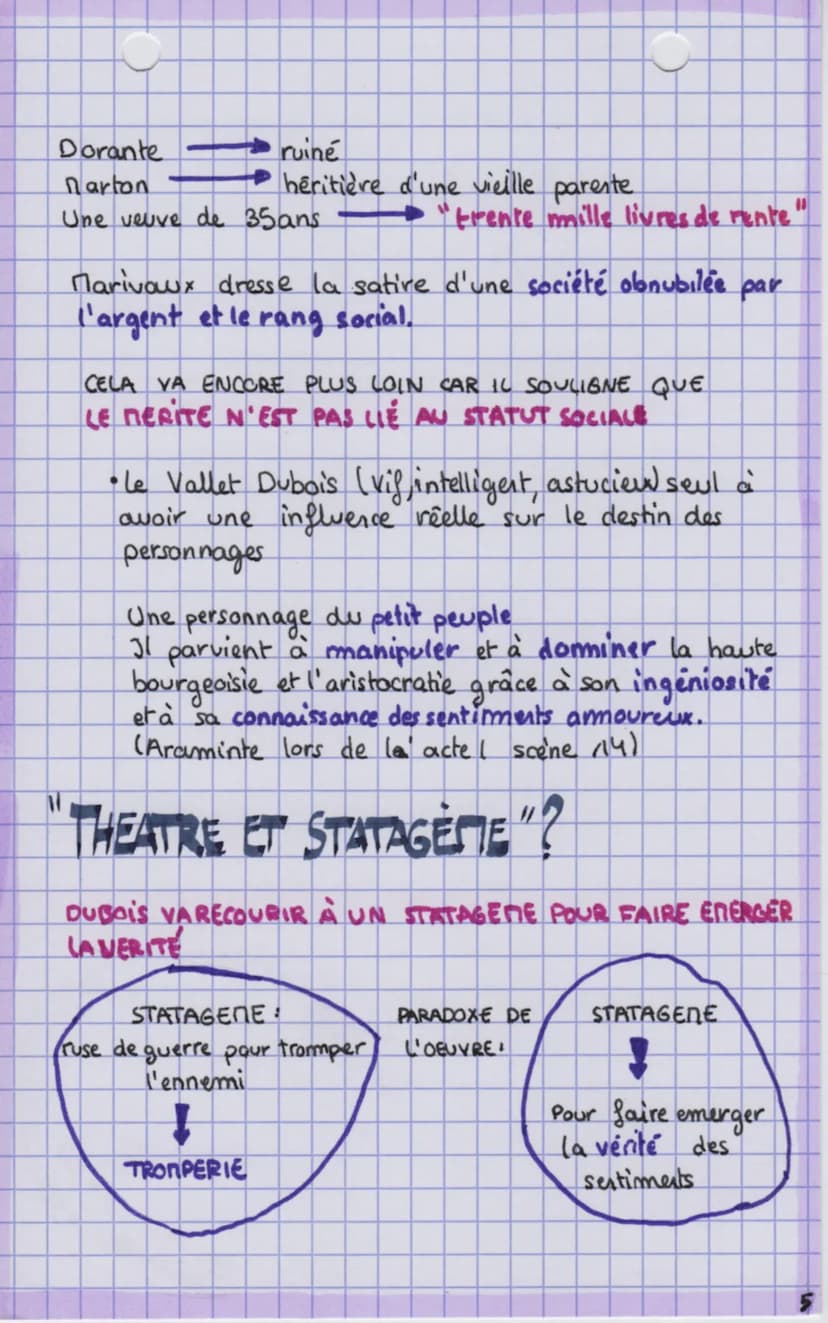 Dorante → ruiné
Marton → héritière d'une vieille parente
Une veuve de 35ans → "trente mille livres de rente"
Marivaux dresse la satire d'une société obnubilée par
l'argent et le rang social.
CELA VA ENCORE PLUS LOIN CAR IL SOULIGNE QUE
LE MERITE N'EST PAS LIÉ AU STATUT SOCIALE
• Le Vallet Dubois (vif, intelligent, astucieux) seul à
avoir une influence réelle sur le destin des
personnages
Une personnage du petit peuple
Il parvient à manipuler et à dominer la haute
bourgeoisie et l'aristocratie grâce à son ingéniosité
et à sa connaissance des sentiments amoureux.
(Araminte lors de la' acte I scène 14)
"THEATRE ET STATAGÈME"?
DUBOIS VA RECOURIR À UN STATAGEME POUR FAIRE EMERGER
LA VERITÉ
STATAGEME :
ruse de guerre pour tromper
l'ennemi
↓
TROMPERIE
PARADOXE DE
L'OEUVRE :
STATAGEME
↓
Pour faire emerger
la vérité des
sentiments
5